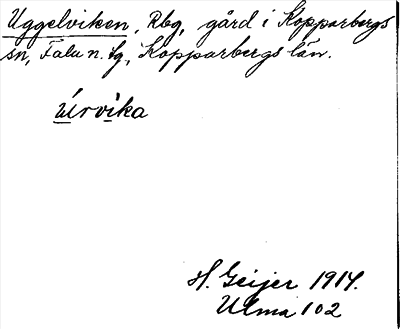 Uggelviken, Rbg, gård i Kopparbergs
sn, Falu n. tg, Kopparbergs län.
Úrvika
H. Geijer 1914.
Ulma 102